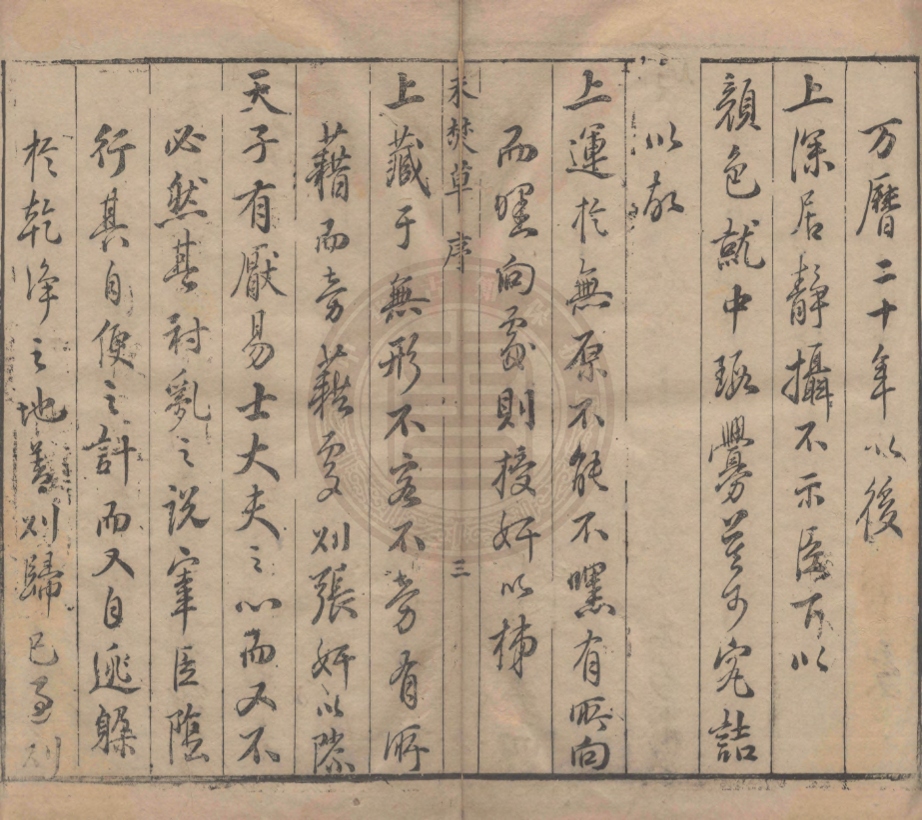 万曆二十年以後
上深居靜攝不示臣下以
顏色就中瑕釁莫可究詰
以故
上運於無原不能不嘿有所向
而嘿向處則授奸以
上藏于無形不容不旁有所
藉而旁藉處則張奸以隙
天子有厭易士大夫之心而又不
必然其討亂之說宰臣陰
行其自便之計而又自逃躲
於乾淨之地善則歸己過則
未焚草 序 三